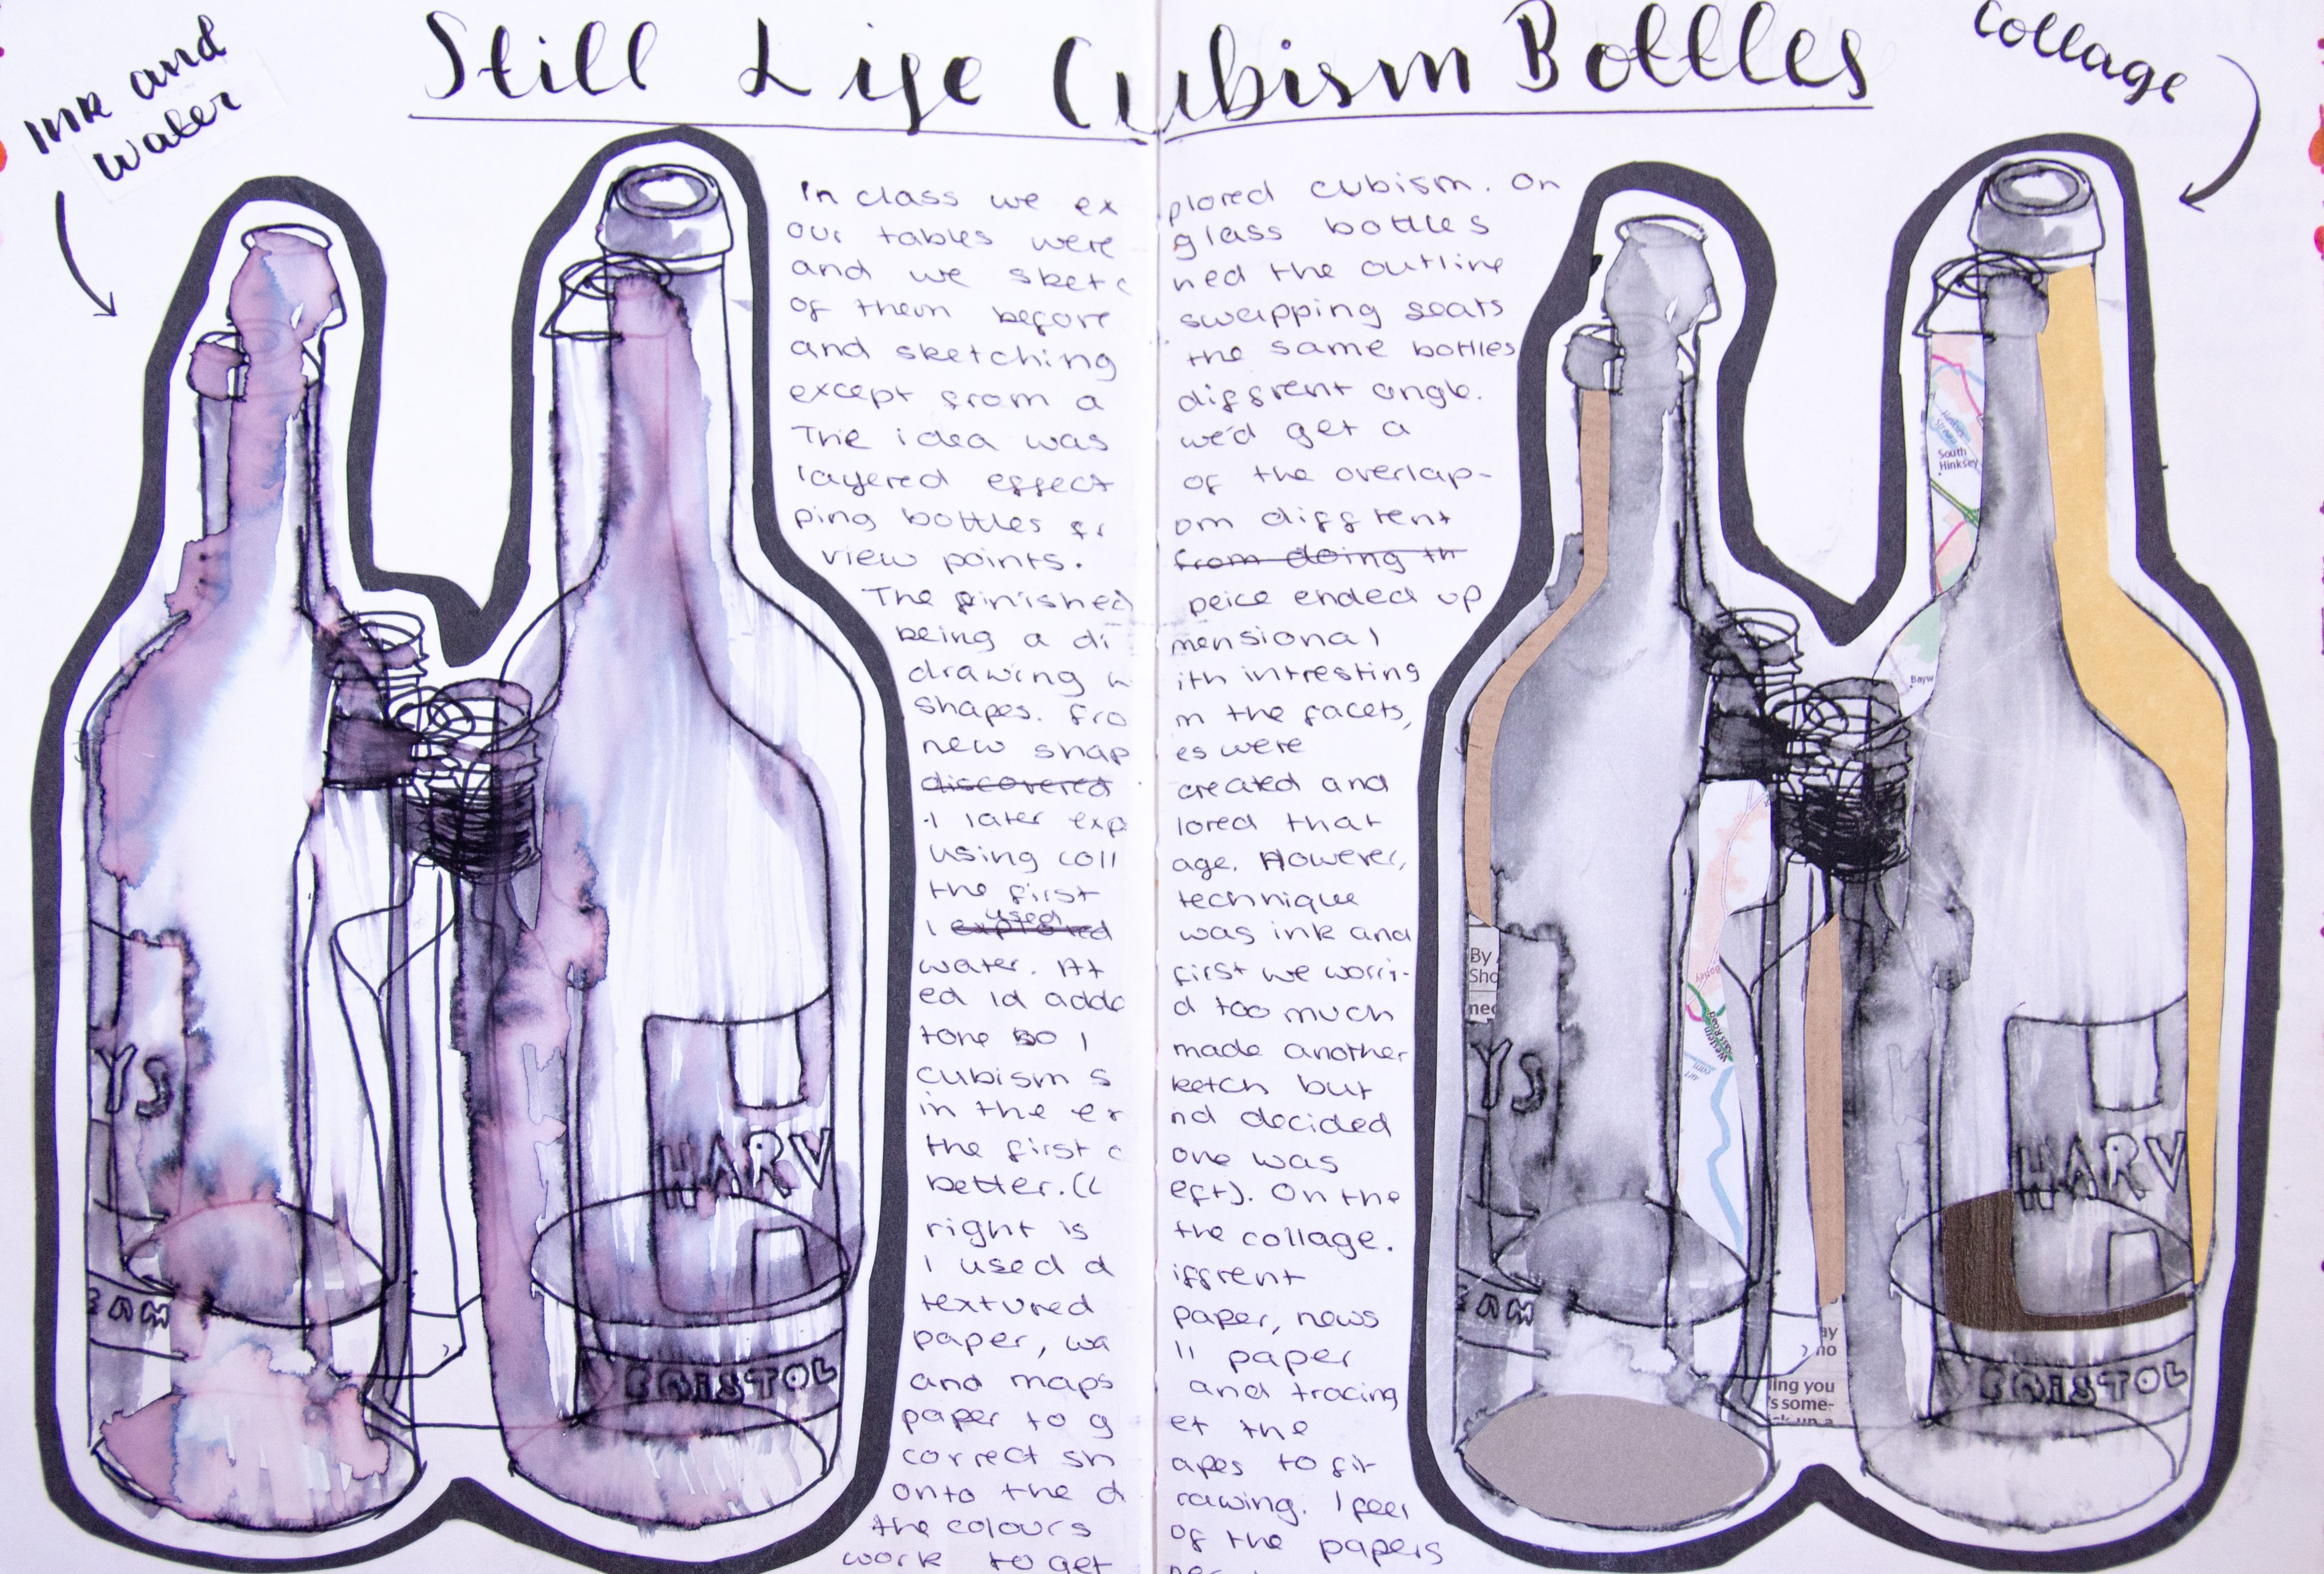 Still Life Cubism Bottles
ink and
water
collage
In class we explored cubism. On
our tables were glass bottles
and we sketched the outline
of them before swapping seats
and sketching the same bottles
except from a diffrent angle.
The idea was we'd get a
layered effect of the overlap-
ping bottles from diffrent
view points. from doing th
The finished peice ended up
being a dimensional
drawing with intresting
shapes. from the facets,
new shapes were
discovered created and
I later explored that
using collage. However,
the first technique
used
I explored was ink and
water. At first we worri-
ed id added too much
tone so I made another
cubism sketch but
in the end decided
the first one was
better. (Left). On the
right is the collage.
I used diffrent
textured paper, news
paper, wall paper
and maps and tracing
paper to get the
correct shapes to fit
onto the drawing. I feel
the colours of the papers
work to get
YS
EAM
HARV
BRISTOL
South
Hinksey
Bayw
By
Sho
Botley
Western
YS
EAM
HARV
BRISTOL
ay
no
ing you
's some-